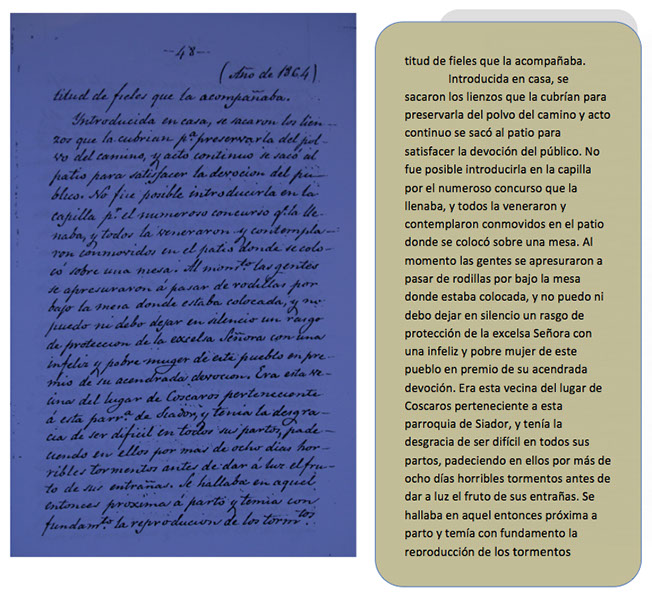 —48—
(Año de 1864)
titud de fieles que la acompañaba.
Introducida en casa, se sacaron los lien-
zos que la cubrian pª preservarla del pol-
vo del camino, y acto continuo se sacó al
patio para satisfacer la devocion del pú-
blico. No fué posible introducirla en la
capilla pr. el numeroso concurso qe. la lle-
naba, y todos la veneraron y contempla-
ron conmovidos en el patio donde se colo-
có sobre una mesa. Al momto. las gentes
se apresuraron á pasar de rodillas por
bajo la mesa donde estaba colocada, y no
puedo ni debo dejar en silencio un rasgo
de proteccion de la excelsa Señora con una
infeliz y pobre muger de este pueblo en pre-
mio de su acendrada devocion. Era esta ve-
cina del lugar de Coscaros perteneciente
á esta parrª. de Siador, y tenia la desgra-
cia de ser dificil en todos sus partos, pade-
ciendo en ellos por mas de ocho dias hor-
ribles tormentos antes de dar á luz el fru-
to de sus entrañas. Se hallaba en aquel
entonces próxima á parto y temia con
fundamto. la reproducion de los tormtos.
titud de fieles que la acompañaba.
Introducida en casa, se
sacaron los lienzos que la cubrían para
preservarla del polvo del camino y acto
continuo se sacó al patio para
satisfacer la devoción del público. No
fue posible introducirla en la capilla
por el numeroso concurso que la
llenaba, y todos la veneraron y
contemplaron conmovidos en el patio
donde se colocó sobre una mesa. Al
momento las gentes se apresuraron a
pasar de rodillas por bajo la mesa
donde estaba colocada, y no puedo ni
debo dejar en silencio un rasgo de
protección de la excelsa Señora con
una infeliz y pobre mujer de este
pueblo en premio de su acendrada
devoción. Era esta vecina del lugar de
Coscaros perteneciente a esta
parroquia de Siador, y tenía la
desgracia de ser difícil en todos sus
partos, padeciendo en ellos por más de
ocho días horribles tormentos antes de
dar a luz el fruto de sus entrañas. Se
hallaba en aquel entonces próxima a
parto y temía con fundamento la
reproducción de los tormentos